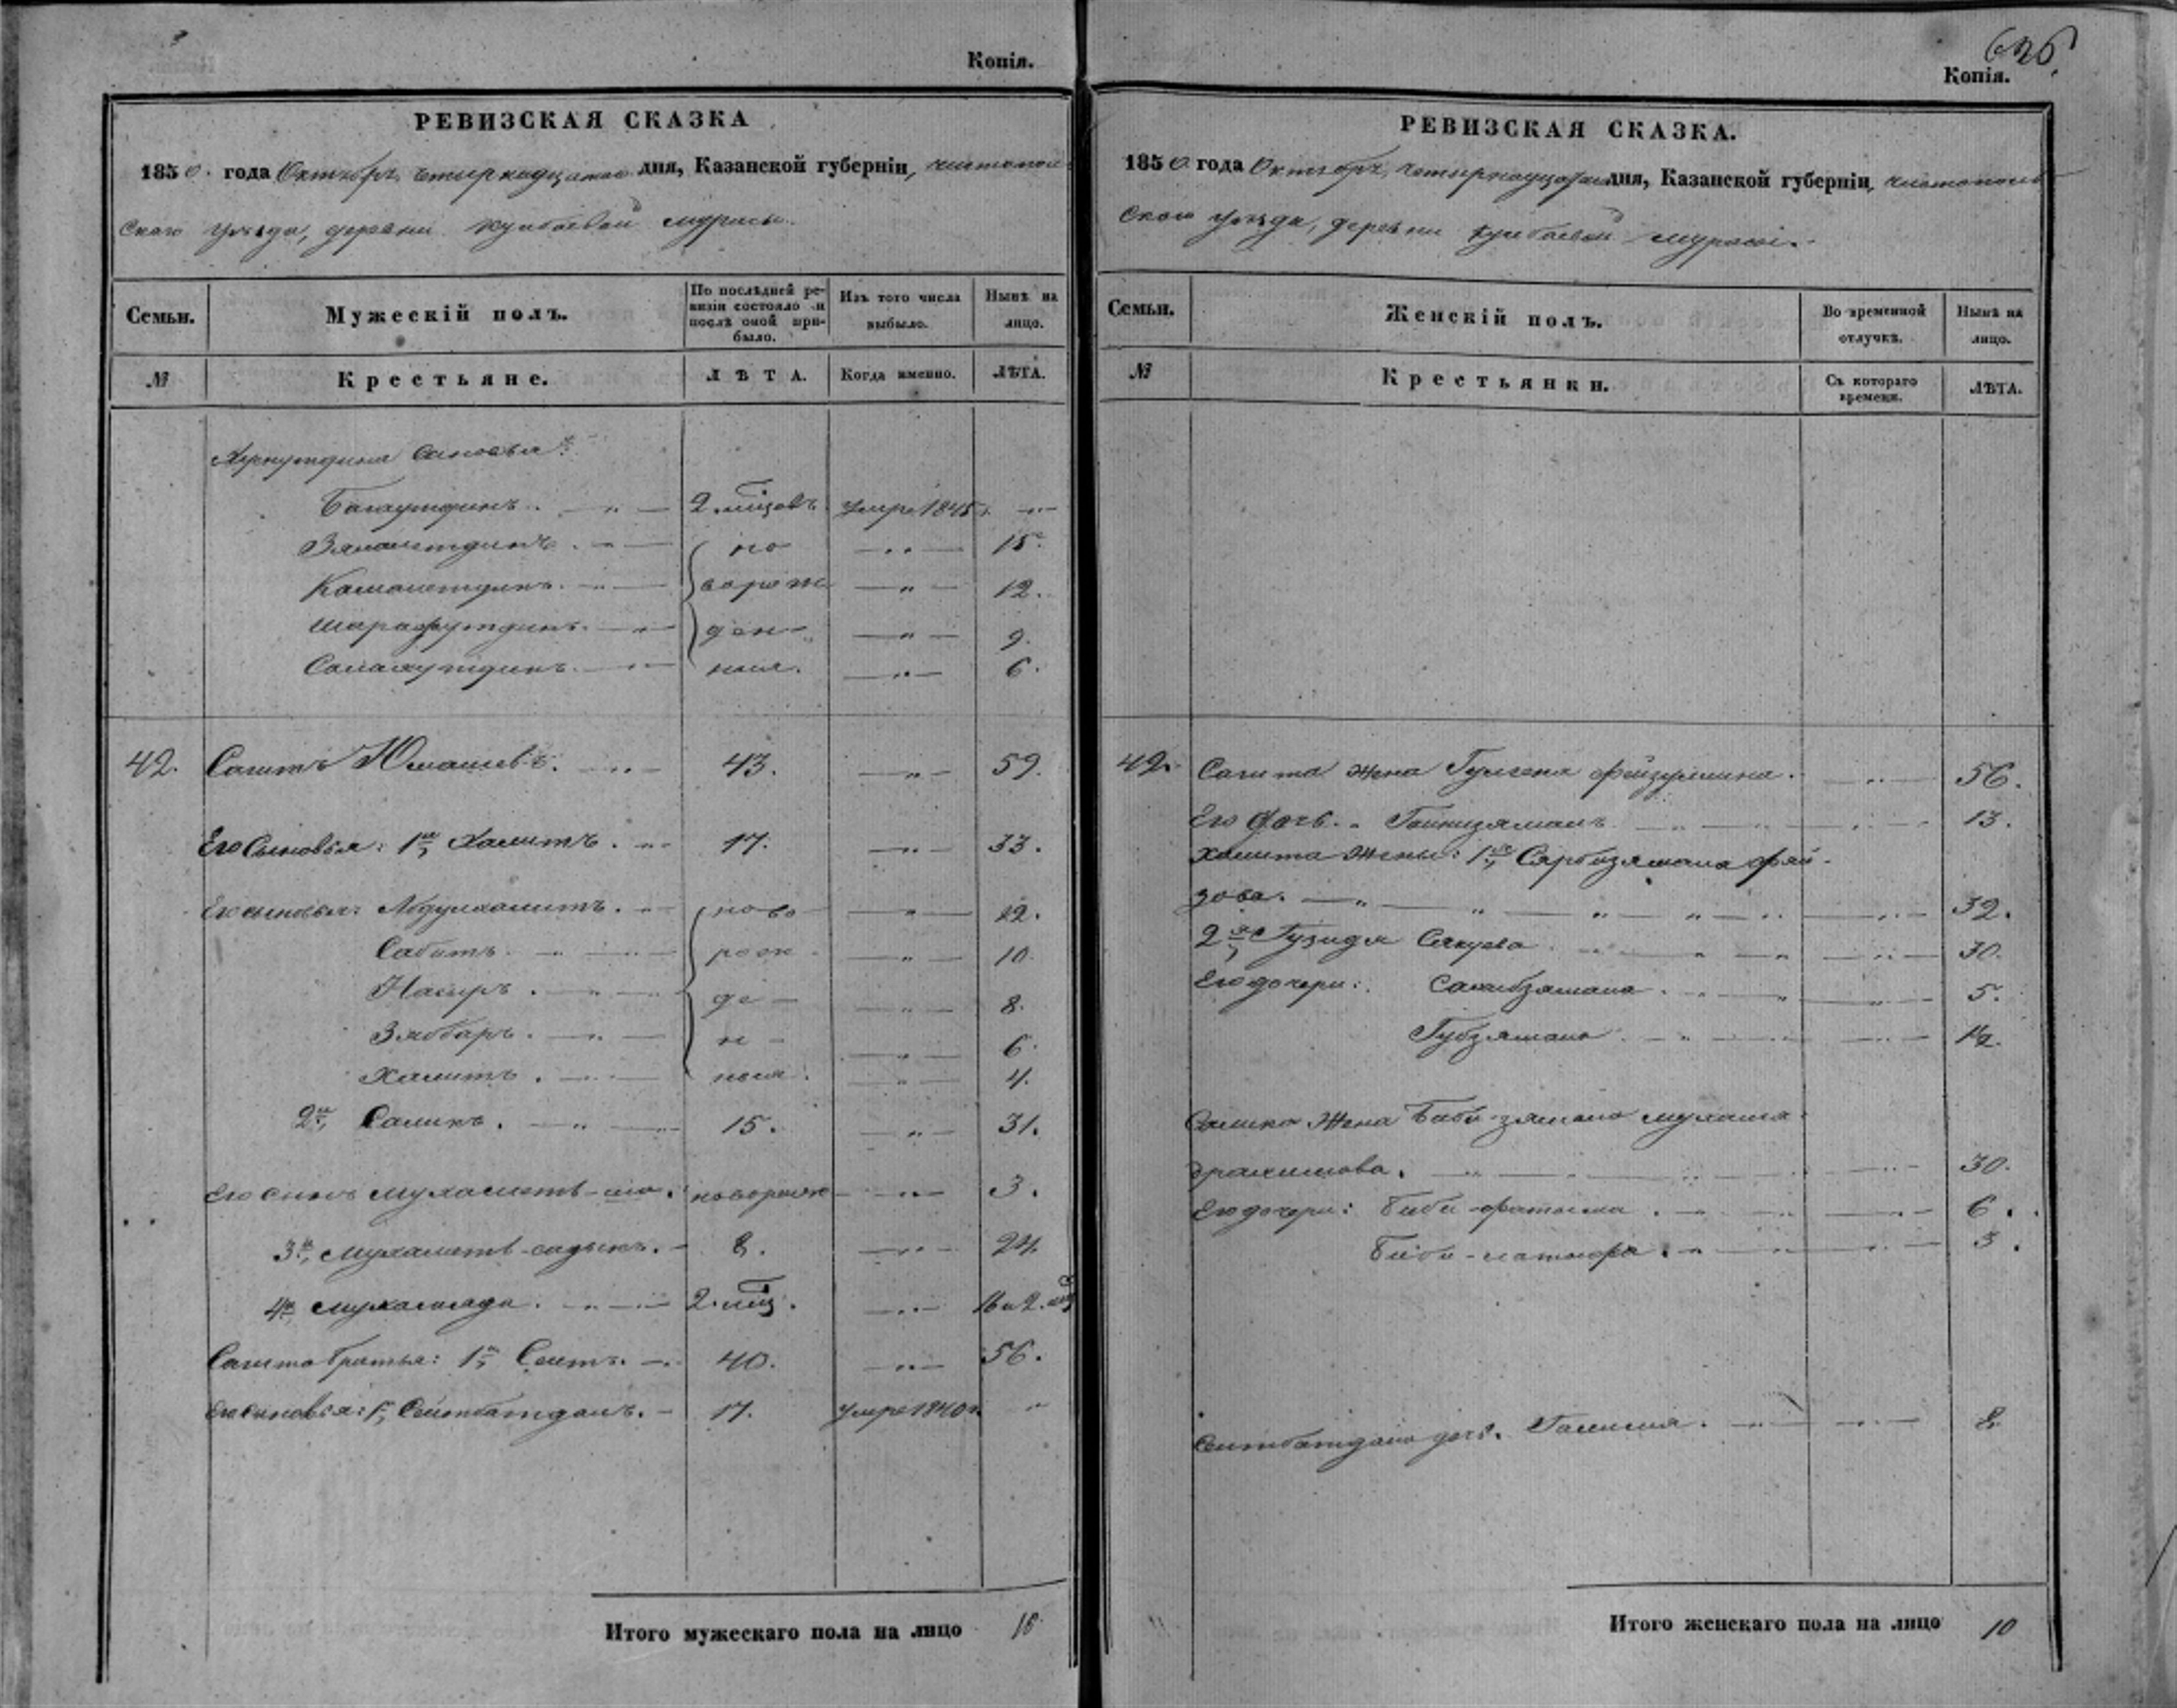 Копія.
РЕВИЗСКАЯ СКАЗКА
1850. года Октября четырнадцатаго дня, Казанской губерніи, чистополь
скаго уѣзда, деревни Кулбаевой мурасы.
Семьи.
Мужескій полъ.
По послѣдней ре-
визіи состояло и
послѣ оной при-
было.
Изъ того числа
выбыло.
Нынѣ на
лицо.
№
Крестьяне.
ЛѢТА.
Когда именно.
ЛѢТА.
сыновья:
Багаутдинъ. 2. мѣсецъ умре 1845 г.
Зямалетдинъ. но 15.
Камалетдинъ. ворож 12.
Шарафутдинъ. ден 9.
Салахутдинъ. ныя. 6.
42. Сагитъ Юмашевъ. 43. 59.
Его Сыновья: 1й, Хамитъ. 17. 33.
Его сыновья: Абдулхамитъ. ново 12.
Сабитъ. рож 10.
Насыръ. де 8.
Зяббаръ. н 6.
Халитъ. ныя. 4.
2й, Салихъ. 15. 31.
Его сынъ Мухаметь-ша. новорож 3.
3й, Мухаметь-садыкъ. 8. 24.
4й Мухамади. 2. мѣц. 16 и 2. мѣц
Сагита братья: 1й, Сеитъ. 40. 56.
Его сыновья: 1, Сеитбатталъ. 17. умре 1840 г.
Итого мужескаго пола на лицо 16
626.
Копія.
РЕВИЗСКАЯ СКАЗКА.
1850 года Октября, четырнадцатаго дня, Казанской губерніи, чистополь
скаго уѣзда, деревни Кулбаевой мурасы.
Семьи.
Женскій полъ.
Во временной
отлучкѣ.
Нынѣ на
лицо.
№
Крестьянки.
Съ котораго
времени.
ЛѢТА.
42. Сагита жена Фейзуллина. 56.
Его дочь. 13.
Хамита Жены: 1я, Сарбизямала Фяй-
зова. 32.
2я, Гузидя 30.
Его дочери: Сахибзямала. 5.
Губзямала. 1/2.
Салиха Жена Биби-зямала
30.
Его дочери: Биби-фатыма. 6.
Биби- 3.
Сеитбаттала дочь. Галима. 8.
Итого женскаго пола на лицо 10